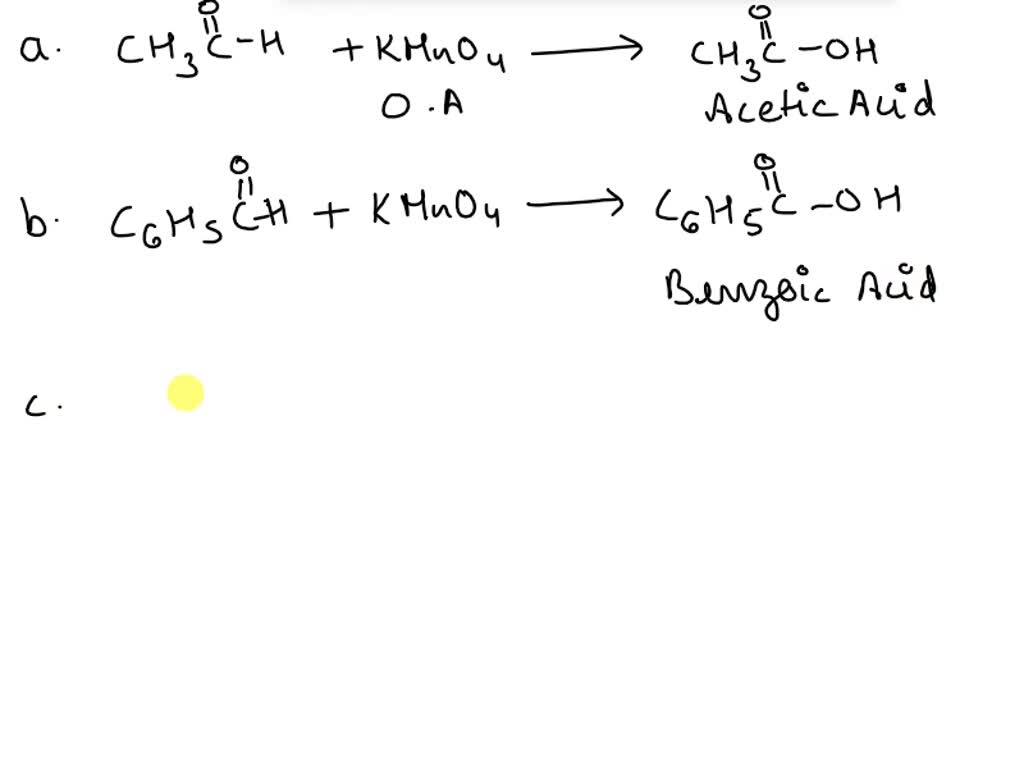 a. CH3C(=O)-H + KMnO4 ⟶ CH3C(=O)-OH
O.A Acetic Acid
b. C6H5C(=O)-H + KMnO4 ⟶ C6H5C(=O)-OH
Benzoic Acid
c.